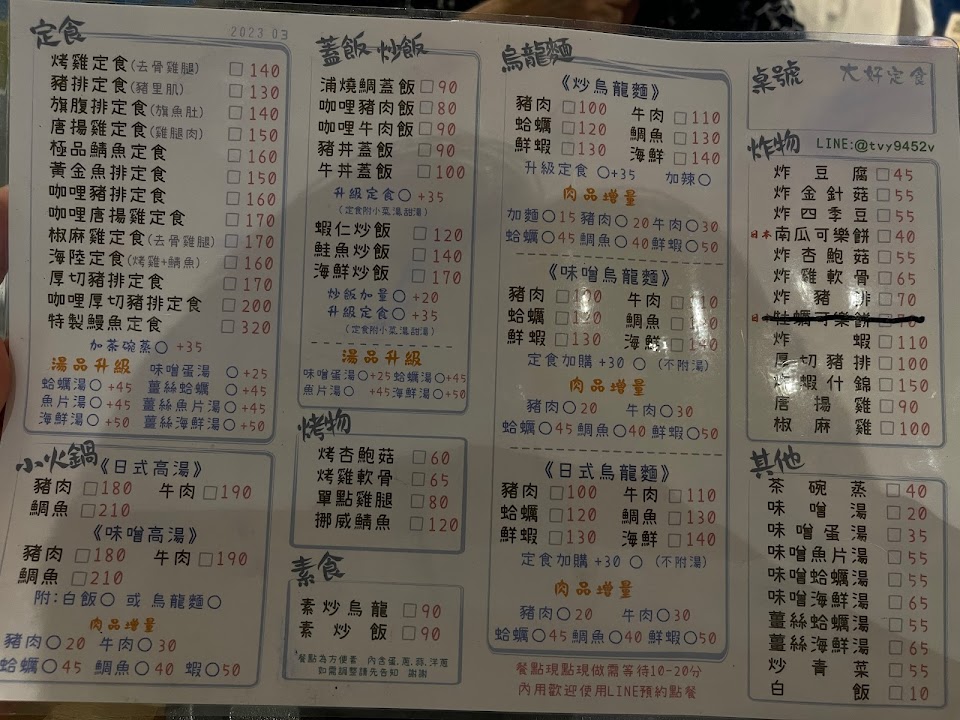 定食 2023 03
烤雞定食(去骨雞腿) □ 140
豬排定食(豬里肌) □ 130
旗腹排定食(旗魚肚) □ 140
唐揚雞定食(雞腿肉) □ 150
極品鯖魚定食 □ 160
黃金魚排定食 □ 150
咖哩豬排定食 □ 160
咖哩唐揚雞定食 □ 170
椒麻雞定食(去骨雞腿) □ 170
海陸定食(烤雞+鯖魚) □ 160
厚切豬排定食 □ 170
咖哩厚切豬排定食 □ 200
特製鰻魚定食 □ 320
加茶碗蒸○ +35
湯品升級 味噌蛋湯 ○ +25
蛤蠣湯○ +45 薑絲蛤蠣 ○ +45
魚片湯○ +45 薑絲魚片湯○ +45
海鮮湯○ +50 薑絲海鮮湯○ +50
小火鍋
《日式高湯》
豬肉 □180 牛肉 □190
鯛魚 □210
《味噌高湯》
豬肉 □180 牛肉 □190
鯛魚 □210
附:白飯○ 或 烏龍麵○
肉品增量
豬肉○20 牛肉○30
蛤蠣○45 鯛魚○40 蝦○50
蓋飯 炒飯
浦燒鯛蓋飯 □90
咖哩豬肉飯 □80
咖哩牛肉飯 □90
豬丼蓋飯 □90
牛丼蓋飯 □100
升級定食○ +35
(定食附小菜.湯.甜湯)
蝦仁炒飯 □120
鮭魚炒飯 □140
海鮮炒飯 □170
炒飯加量○ +20
升級定食○ +35
(定食附小菜.湯.甜湯)
湯品升級
味噌蛋湯○+25 蛤蠣湯○+45
魚片湯○ +45 海鮮湯○+50
烤物
烤杏鮑菇 □60
烤雞軟骨 □65
單點雞腿 □80
挪威鯖魚 □120
素食
素炒烏龍 □90
素炒飯 □90
餐點為方便素 內含蛋.蔥.蒜.洋蔥
如需調整請先告知 謝謝
烏龍麵
《炒烏龍麵》
豬肉 □100 牛肉 □110
蛤蠣 □120 鯛魚 □130
鮮蝦 □130 海鮮 □140
升級定食 ○+35 加辣○
肉品增量
加麵○15 豬肉○20 牛肉○30
蛤蠣○45 鯛魚○40 鮮蝦○50
《味噌烏龍麵》
豬肉 □100 牛肉 □110
蛤蠣 □120 鯛魚 □130
鮮蝦 □130 海鮮 □140
定食加購 +30 ○ (不附湯)
肉品增量
豬肉○20 牛肉○30
蛤蠣○45 鯛魚○40 鮮蝦○50
《日式烏龍麵》
豬肉 □100 牛肉 □110
蛤蠣 □120 鯛魚 □130
鮮蝦 □130 海鮮 □140
定食加購 +30 ○ (不附湯)
肉品增量
豬肉○20 牛肉○30
蛤蠣○45 鯛魚○40 鮮蝦○50
餐點現點現做需等待10-20分
內用歡迎使用LINE預約點餐
桌號 大好定食
炸物 LINE:@tvy9452v
炸豆腐 □45
炸金針菇 □55
炸四季豆 □55
日本南瓜可樂餅 □40
炸杏鮑菇 □55
炸雞軟骨 □65
炸豬排 □70
牡蠣可樂餅
炸蝦 □110
厚切豬排 □100
炸蝦什錦 □150
唐揚雞 □90
椒麻雞 □100
其他
茶碗蒸 □40
味噌湯 □20
味噌蛋湯 □35
味噌魚片湯 □55
味噌蛤蠣湯 □55
味噌海鮮湯 □65
薑絲蛤蠣湯 □55
薑絲海鮮湯 □65
炒青菜 □55
白飯 □10